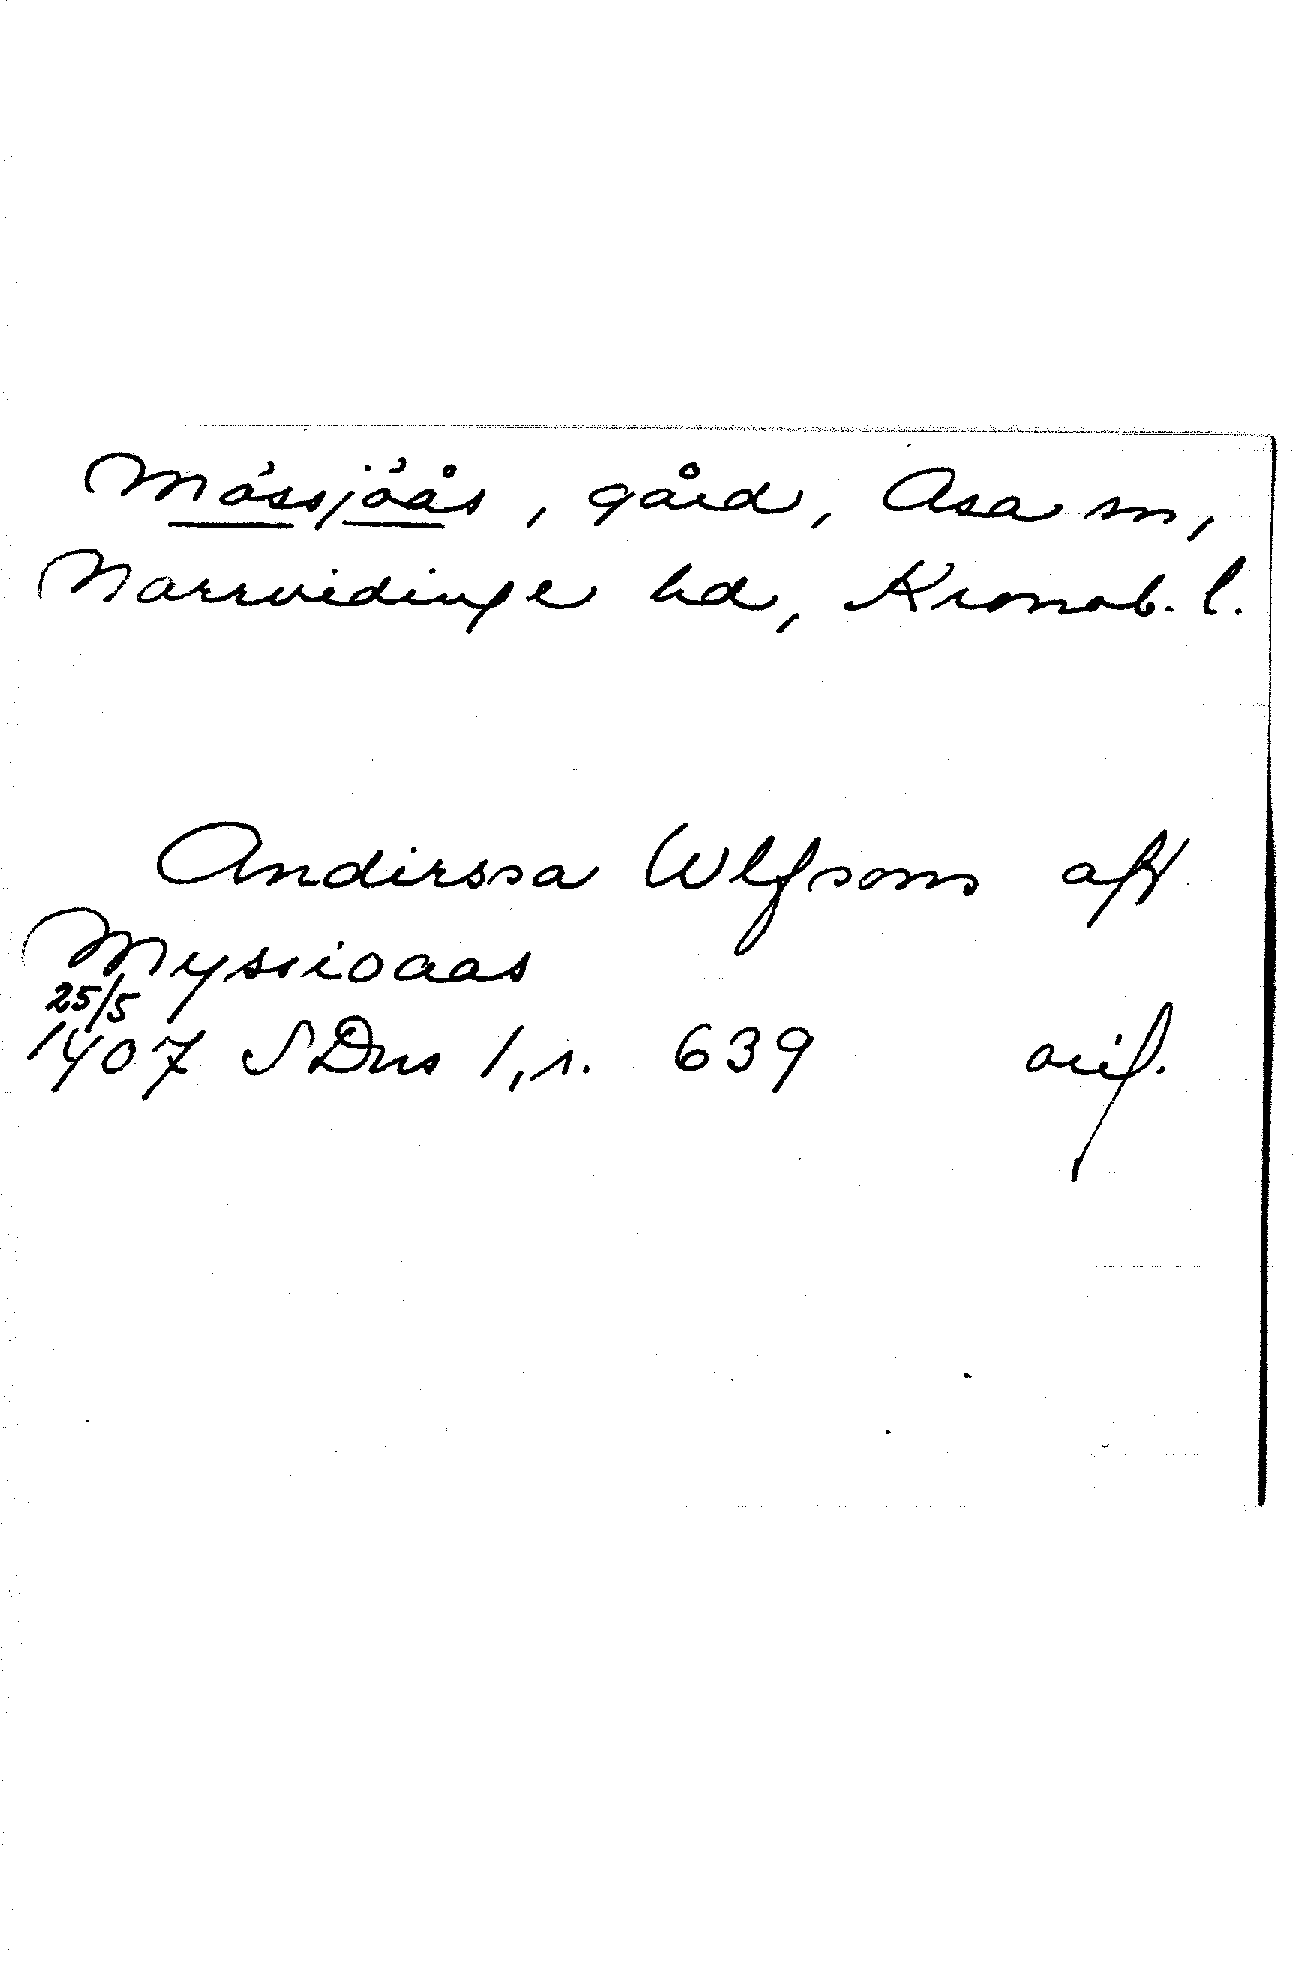 Mössjöås, gård, Asa sn,
Norrvidinge hd, Kronob. l.
Andirssa Wlfsons aff
Myssioaas
25/5
1407 SDns 1, s. 639 orif.